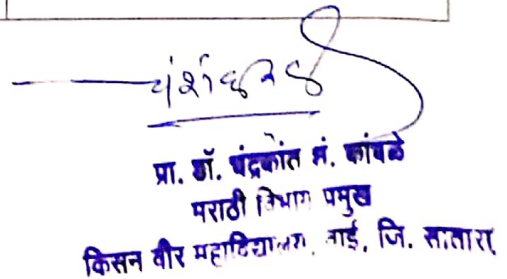 प्रा. डॉ. चंद्रकांत भं. कांबळे
मराठी विभाग प्रमुख
किसन वीर महाविद्यालय, वाई, जि. सातारा